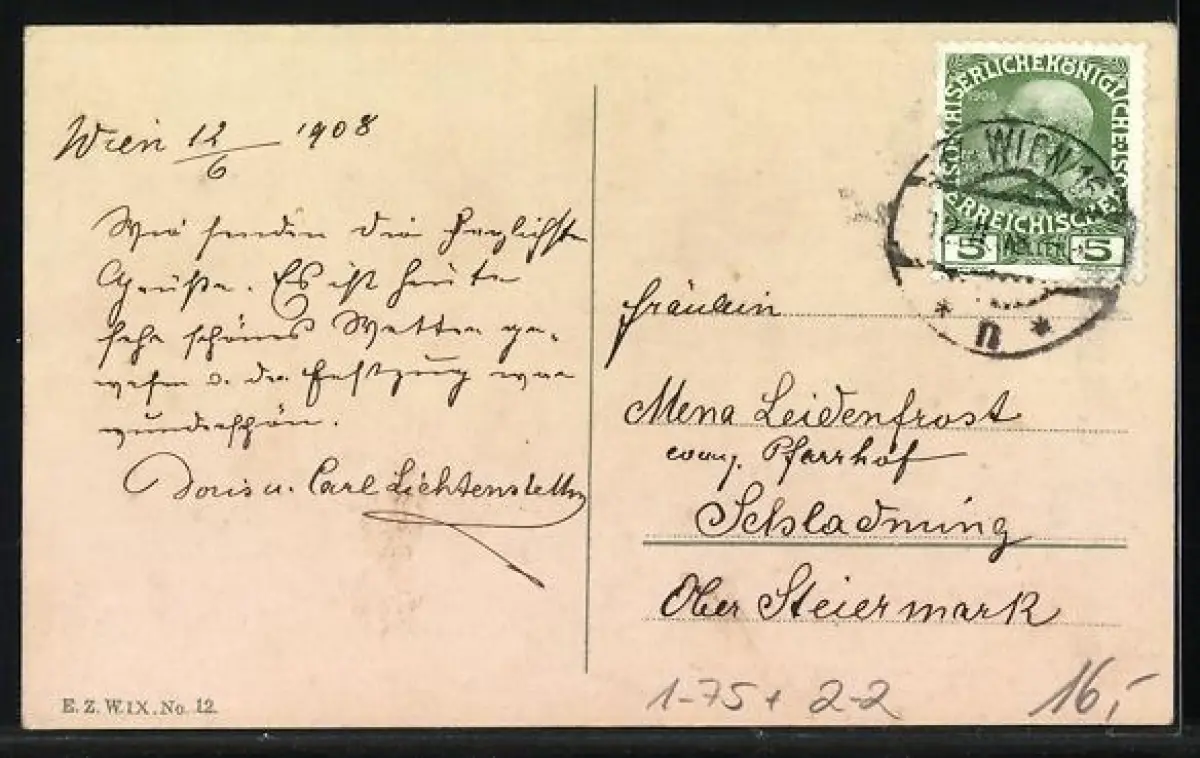 Wien 12/6 1908
Wir senden die herzlichsten
Grüße. Es ist heute
sehr schönes Wetter ge-
wesen u. der Festzug war
wunderschön.
Doris u. Carl Lichtenstettin
KAISERLICHE KÖNIGLICHE ÖSTERREICHISCHE
1908
5 5
WIEN
* n *
Fräulein
Mena Leidenfrost
evang. Pfarrhof
Schladming
Ober Steiermark
E. Z. W. IX. No. 12.
1-75+ 2-2
16,-